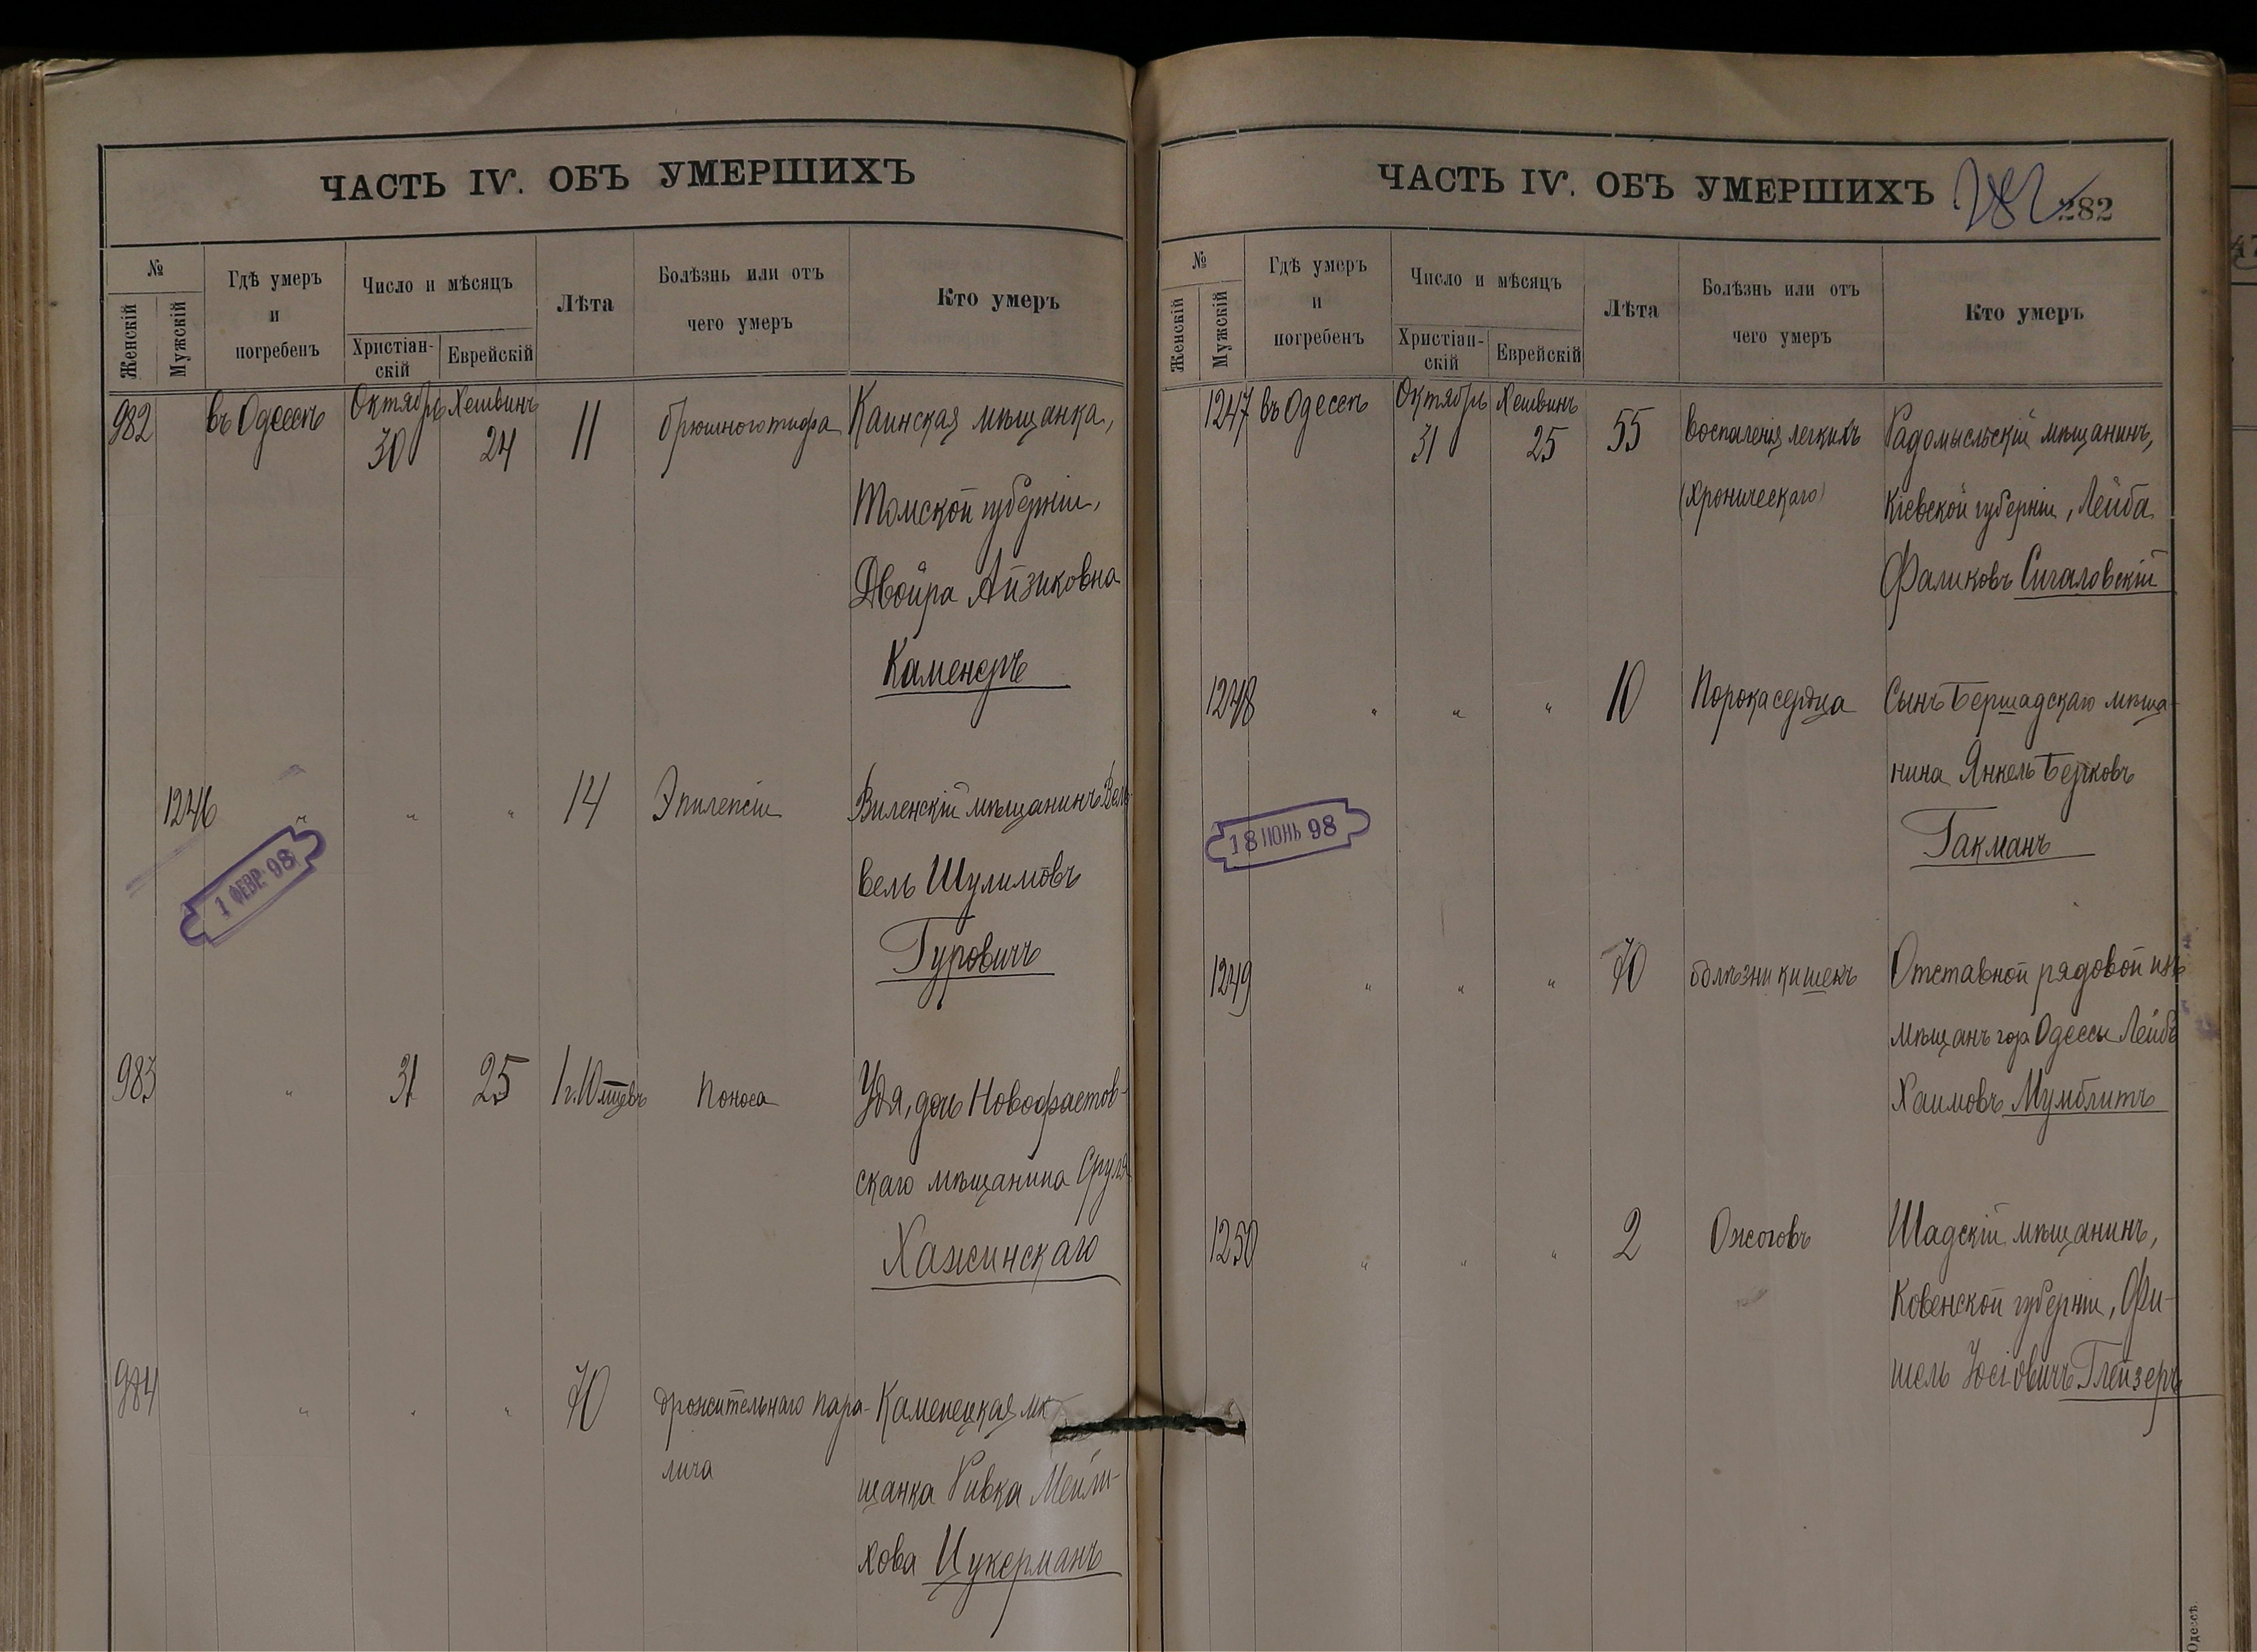 ЧАСТЬ IV. ОБЪ УМЕРШИХЪ
№
Женскій
Мужскій
Гдѣ умеръ
и
погребенъ
Число и мѣсяцъ
Христіан-
скій
Еврейскій
Лѣта
Болѣзнь или отъ
чего умеръ
Кто умеръ
982 въ Одессѣ Октябрь 30 Хешвинъ 24 11 брюшного тифа Каинская мѣщанка,
Томской губерніи,
Двойра Айзиковна
Каменеръ
1246 " " " 14 Эпилепсіи Виленскій мѣщанинъ Вель-
вель Шулимовъ
Гуровичъ
1 ФЕВР. 98
983 " 31 25 1 г. 10 мцевъ Поноса Удя, дочь Новофастов-
скаго мѣщанина Сруля
Хажинскаго
984 " " " 70 дрожительнаго пара- Каменецкая мѣ
лича
щанка Ривка Мейли-
хова Цукерманъ
ЧАСТЬ IV. ОБЪ УМЕРШИХЪ 282 282
№
Женскій
Мужскій
Гдѣ умеръ
и
погребенъ
Число и мѣсяцъ
Христіан-
скій
Еврейскій
Лѣта
Болѣзнь или отъ
чего умеръ
Кто умеръ
1247 въ Одессѣ Октябрь 31 Хешвинъ 25 55 воспаленія легкихъ Радомысльскій мѣщанинъ,
(хроническаго) Кіевской губерніи, Лейба
Фаликовъ Сигаловскій
1248 " " " 10 Порока сердца Сынъ Бершадскаго мѣща-
нина Янкель Берковъ
Гакманъ
18 ІЮНЬ 98
1249 " " " 70 болѣзни кишекъ Отставной рядовой изъ
мѣщанъ гор Одессы Лейбъ
Хаимовъ Мумблитъ
1250 " " " 2 Ожоговъ Шадскій мѣщанинъ,
Ковенской губерніи, Фи-
шель Глейзеръ
Одессѣ.